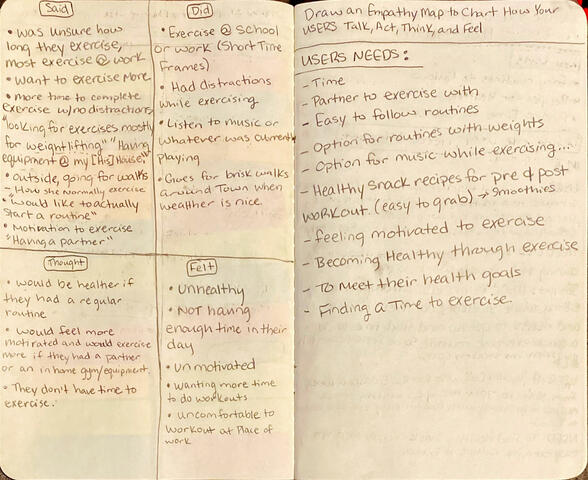 Said
• was unsure how
long they exercise,
most exercise @ work
• Want to exercise more
• more time to complete
Exercise w/no distractions
"looking for exercises mostly
for weightlifting" "Having
equipment @ my [His] House"
• outside, going for walks
- How she normally exercise
• "would like to actually
Start a routine"
• Motivation to exercise
"Having a partner"
Did
• Exercise @ School
or work (Short Time
Frames)
• Had distractions
while exercising
• Listen to music or
whatever was currently
playing
• Goes for brisk walks
around Town when
weather is nice.
Thought
• would be healthier if
they had a regular
routine
• would feel more
motivated and would exercise
more if they had a partner
or an in home gym/equipment.
• They don't have time to
exercise.
Felt
• Unhealthy
• NOT having
enough time in their
day
• Unmotivated
• wanting more time
to do workouts
• uncomfortable to
workout at Place of
work
Draw an Empathy Map to Chart How Your
USERS Talk, Act, Think, and Feel
USERS NEEDS:
- Time
- Partner to exercise with
- Easy to follow routines
- Option for routines with weights
- Option for music while exercising...
- Healthy snack recipes for pre & post
workout. (easy to grab) → Smoothies
- feeling motivated to exercise
- Becoming Healthy through exercise
- To meet their health goals
- Finding a Time to exercise